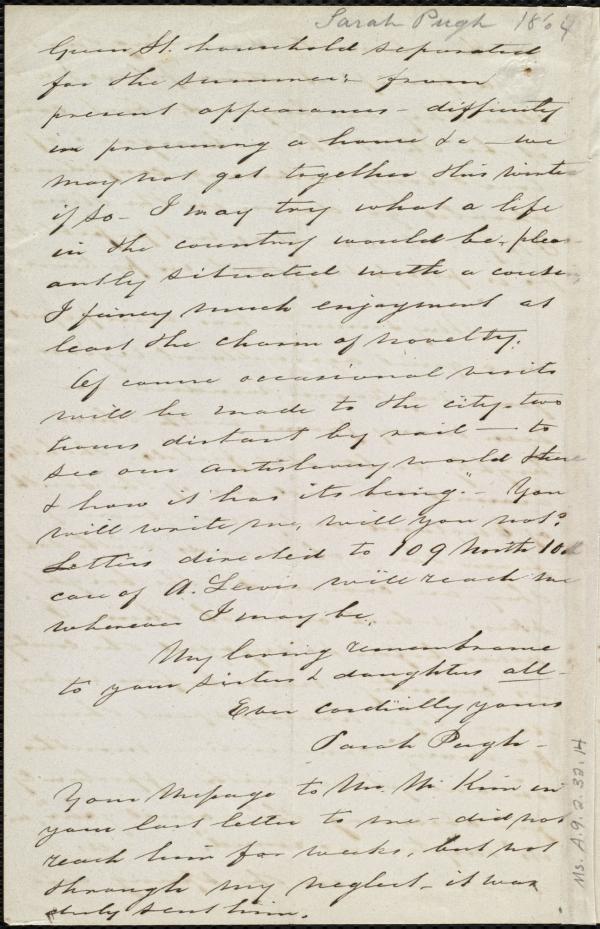 Sarah Pugh 1864
Green St. household separated
for the summer; from
present appearances - difficulty
in procuring a house &c - we
may not get together this winter
if so - I may try what a life
in the country would be, pleas
antly situated with a cousin,
I fancy much enjoyment at
least the charm of novelty.
Of course occasional visits
will be made to the city - two
hours distant by rail - to
see our antislavery world there
& how it "has its being". - You
will write me, will you not?
Letters directed to 109 North 10th
care of A. Lewis will reach me
wherever I may be.
My loving remembrance
to your sisters & daughters all -
Ever cordially yours
Sarah Pugh -
Your Message to Mr. M. Kim in
your last letter to me - did not
reach him for weeks, but not
through my neglect - it was
duly sent him.
Ms. A.9.2.32.14